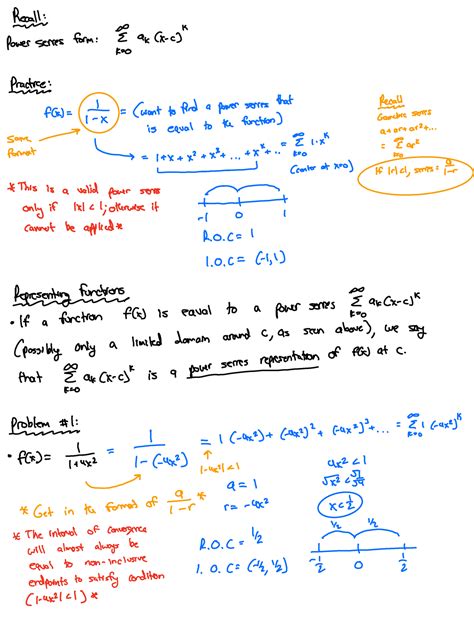 Recall:
Power series form: ∞ Σ k=0 aₖ(x-c)ᵏ
Practice:
f(x) = 1/(1-x) = (want to find a power series that
is equal to the function)
Same
format
= 1+x+x²+x³+...+xᵏ.. = ∞ Σ k=0 1·xᵏ
(center at x=0)
Recall
Geometric series
a+ar+ar²+...
= ∞ Σ k=0 arᵏ
If |r|<1, series = a/(1-r)
* This is a valid power series
only if |x|<1; otherwise it
cannot be applied *
-1 0 1
R.O.C = 1
I.O.C = (-1,1)
Representing Functions
• If a function f(x) is equal to a power series ∞ Σ k=0 aₖ(x-c)ᵏ
(possibly only a limited domain around c, as seen above), we say
that ∞ Σ k=0 aₖ(x-c)ᵏ is a power series representation of f(x) at c.
Problem #1:
• f(x) = 1/(1+4x²) = 1/(1-(-4x²)) = 1(-4x²)+(-4x²)²+(-4x²)³+... = ∞ Σ k=0 1(-4x²)ᵏ
|-4x²|<1
* Get in the format of a/(1-r) *
a = 1
r = -4x²
4x²<1
√x²<√1/√4
x<1/2
* The interval of convergence
will almost always be
equal to non-inclusive
endpoints to satisfy condition
(|-4x²|<1) *
R.O.C = 1/2
I.O.C = (-1/2, 1/2)
1/2 1/2
-1/2 0 1/2